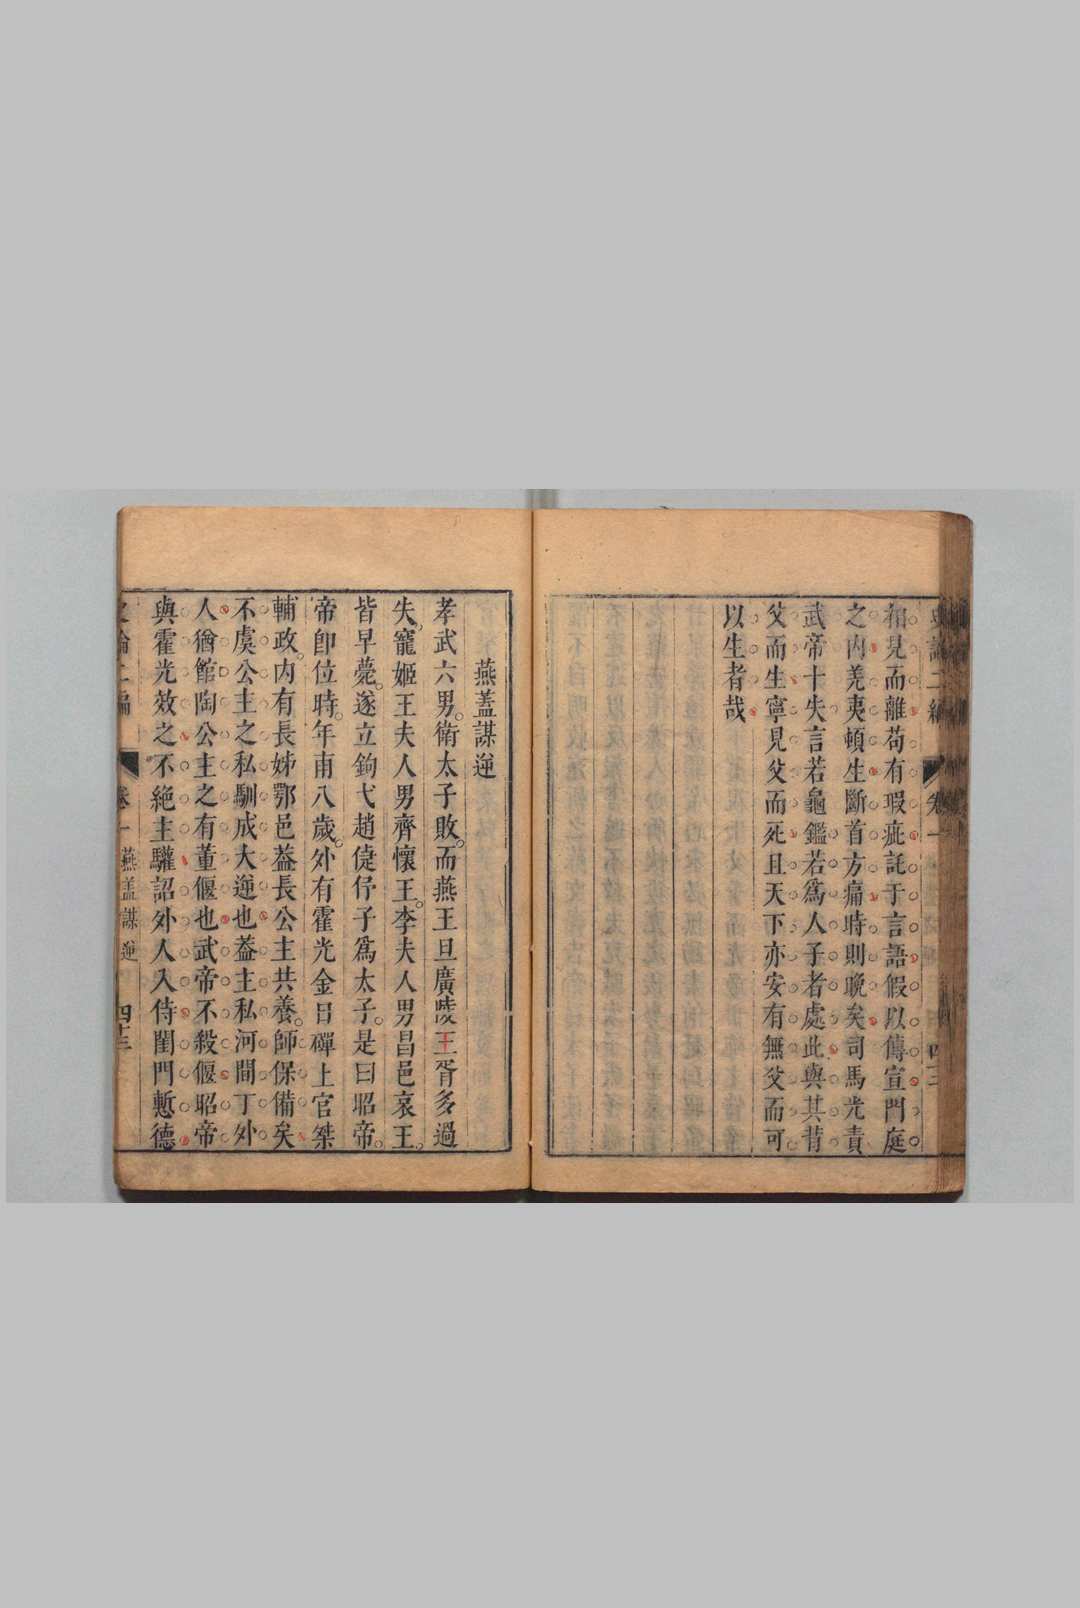 史論二編
卷一
四三
相見而離苟有瑕疵託于言語假以傳宣門庭
之內羌夷頓生斷首方痛時則晚矣司馬光責
武帝十失言若龜鑑若爲人子者處此與其昔
父而生寧見父而死且天下亦安有無父而可
以生者哉
燕蓋謀逆
孝武六男衛太子敗而燕王旦廣陵王胥多過
失寵姬王夫人男齊懷王李夫人男昌邑哀王
皆早薨遂立鉤弋趙倢伃子爲太子是曰昭帝
帝卽位時年甫八歲外有霍光金日磾上官桀
輔政內有長姊鄂邑葢長公主共養師保備矣
不虞公主之私馴成大逆也葢主私河間丁外
人猶館陶公主之有董偃也武帝不殺偃昭帝
與霍光效之不絶主驩詔外人入侍閨門慙德
史論二編
卷一
燕盖謀逆
四十三